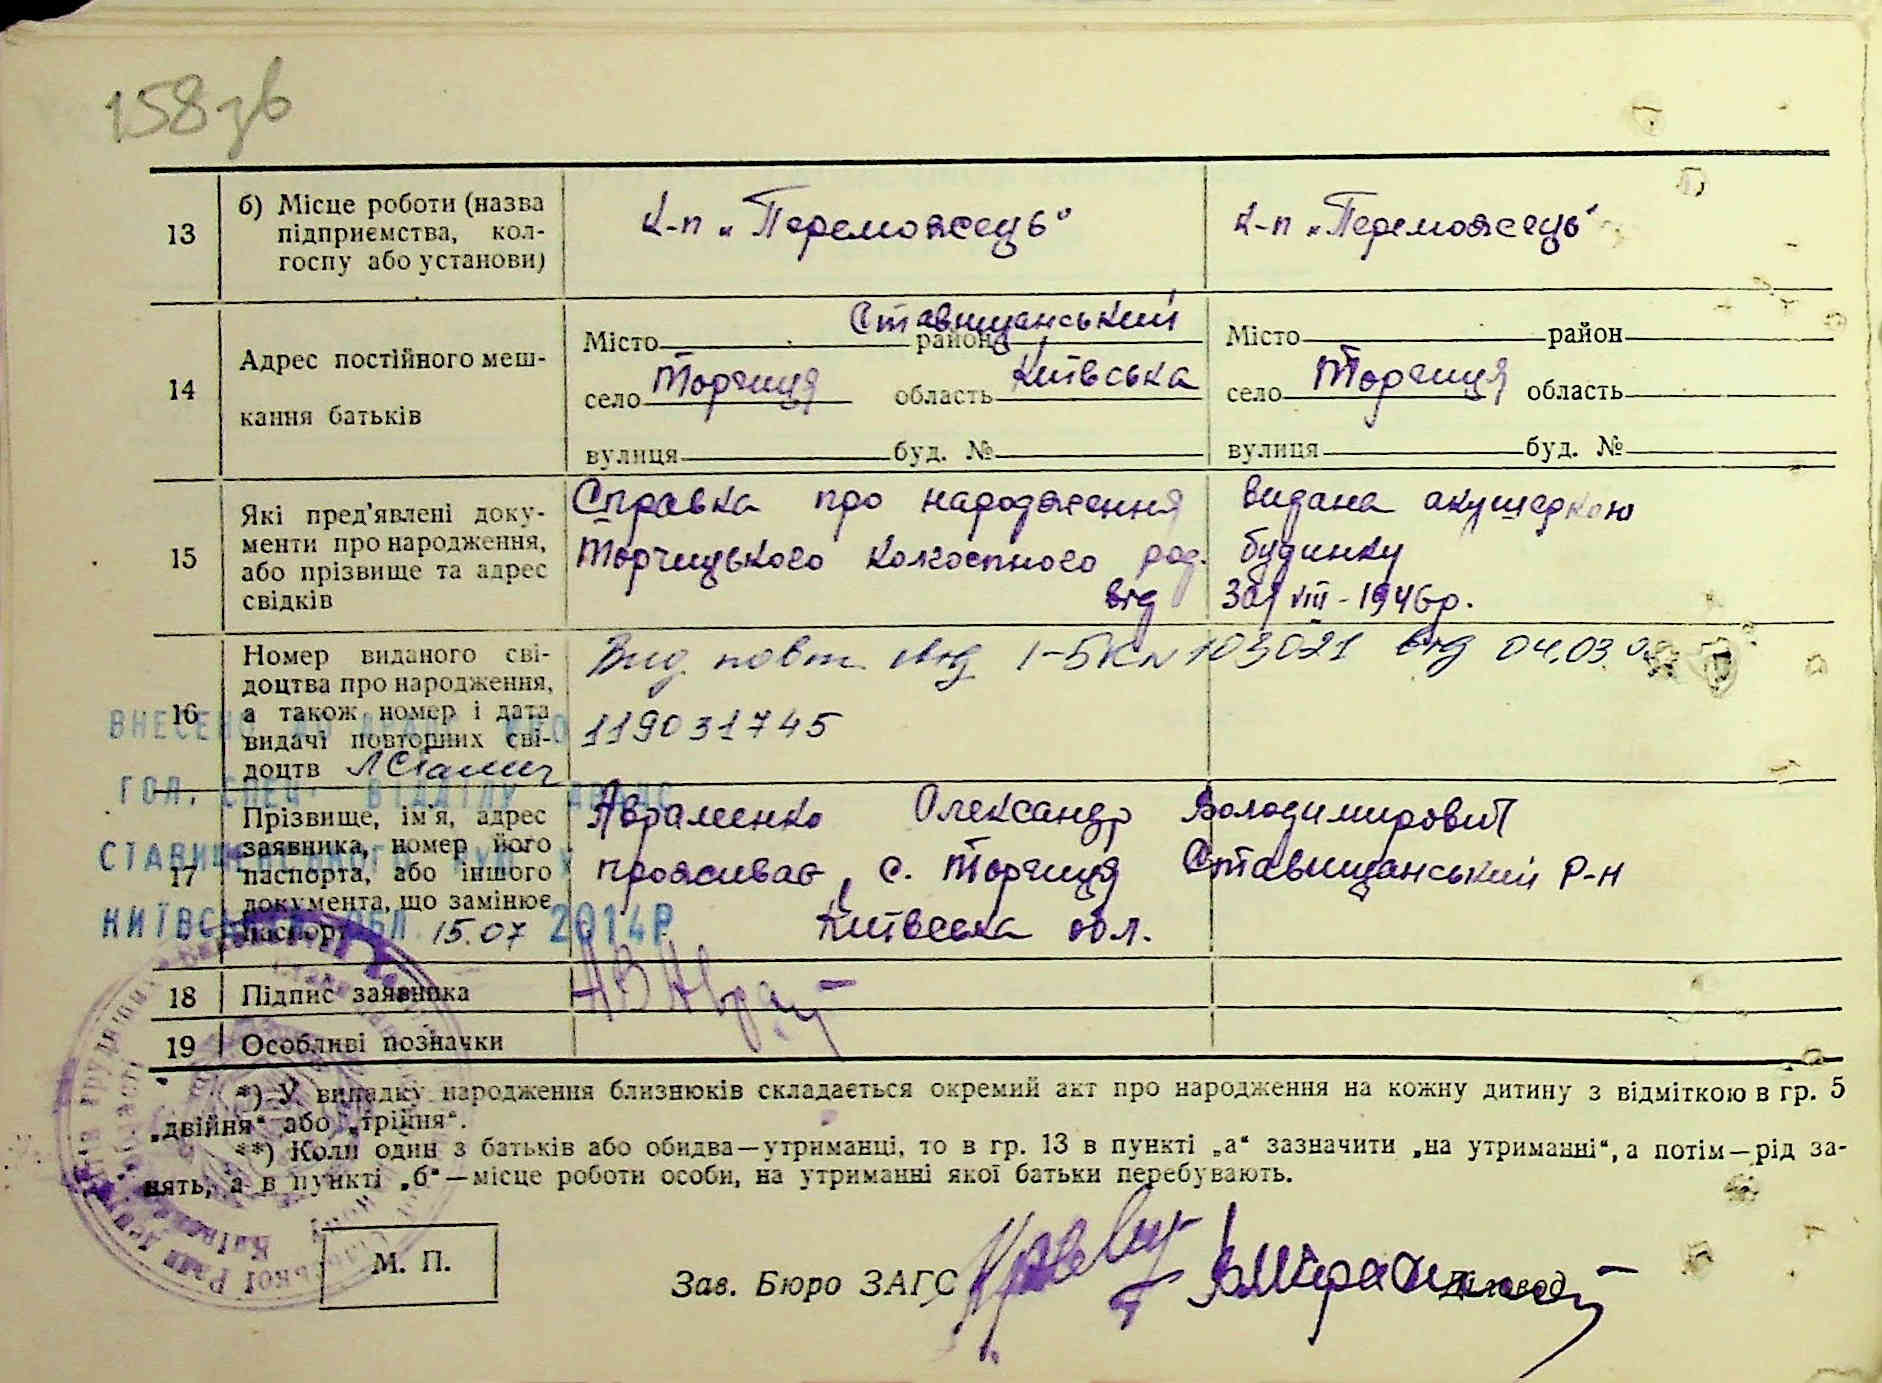 158 зв
13
б) Місце роботи (назва
підприємства, кол-
госпу або установи)
к-п „Переможець"
к-п „Переможець"
14
Адрес постійного меш-
кання батьків
Місто район Ставищанський
село Торчиця область Київська
вулиця буд. №
Місто район
село Торчиця область
вулиця буд. №
15
Які пред'явлені доку-
менти про народження,
або прізвище та адрес
свідків
Справка про народження видана акушеркою
Торчицького колгоспного род. будинку
від VIII - 1946р.
16
Номер виданого сві-
доцтва про народження,
а також номер і дата
видачі повторних сві-
доцтв
Вид повт. свід I-БК № 103021 від 04.03.
119031745
ВНЕСЕНО
ГОЛ. СПЕЦ. ВІДДІЛУ
КИЇВСЬКА ОБЛ. 15.07 2014Р
17
Прізвище, ім'я, адрес
заявника, номер його
паспорта, або іншого
документа, що замінює
паспорт
Авраменко Олександр Володимирович
проживає, с. Торчиця Ставищанський р-н
Київська обл.
18
Підпис заявника
19
Особливі позначки
*) У випадку народження близнюків складається окремий акт про народження на кожну дитину з відміткою в гр. 5
„двійня" або „трійня".
**) Коли один з батьків або обидва—утриманці, то в гр. 13 в пункті „а" зазначити „на утриманні", а потім—рід за-
нять, а в пункті „б"—місце роботи особи, на утриманні якої батьки перебувають.
М. П.
Зав. Бюро ЗАГС
Діловод